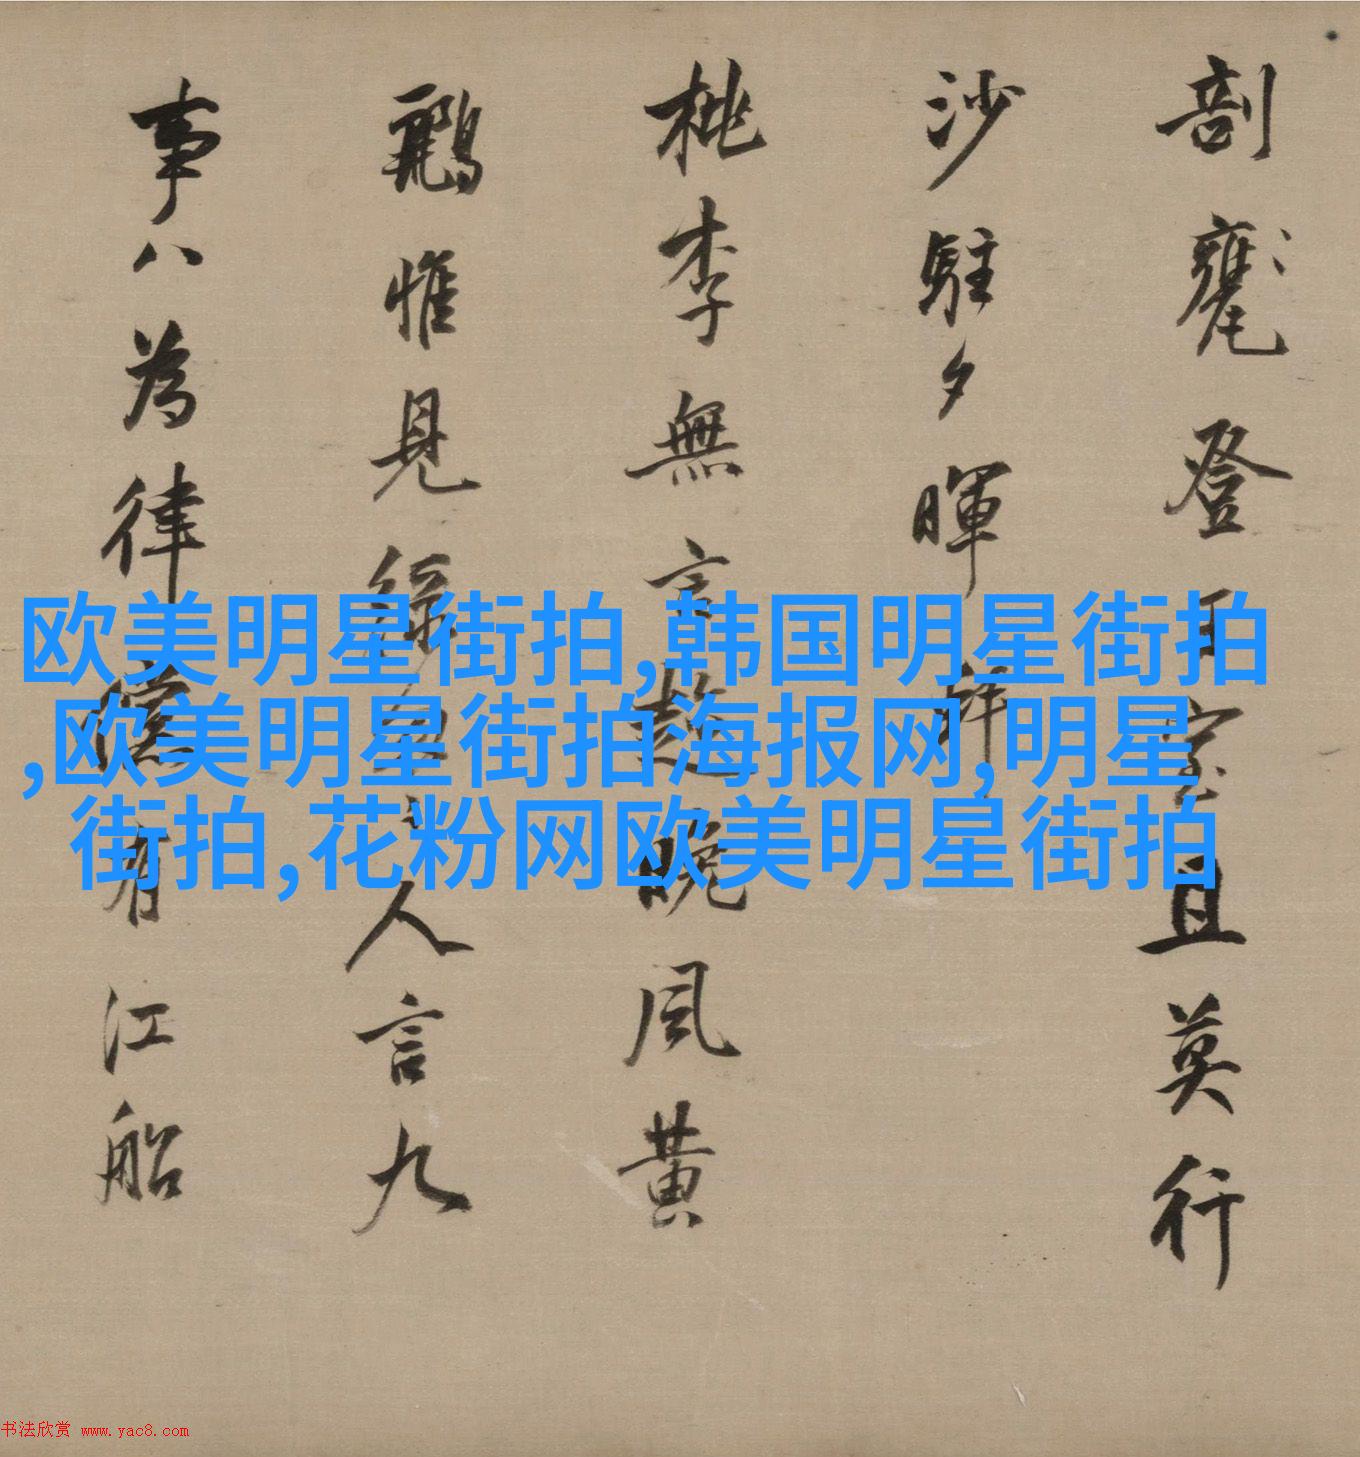 剖甕登且莫行
沙駐夕暉
桃李無言晚風黄
鸝惟見綠人言九
事八為律僕有江船
欧美明星街拍,韩国明星街拍
,欧美明星街拍海报网,明星
街拍,花粉网欧美明星街拍
书法欣赏 www.yac8.com